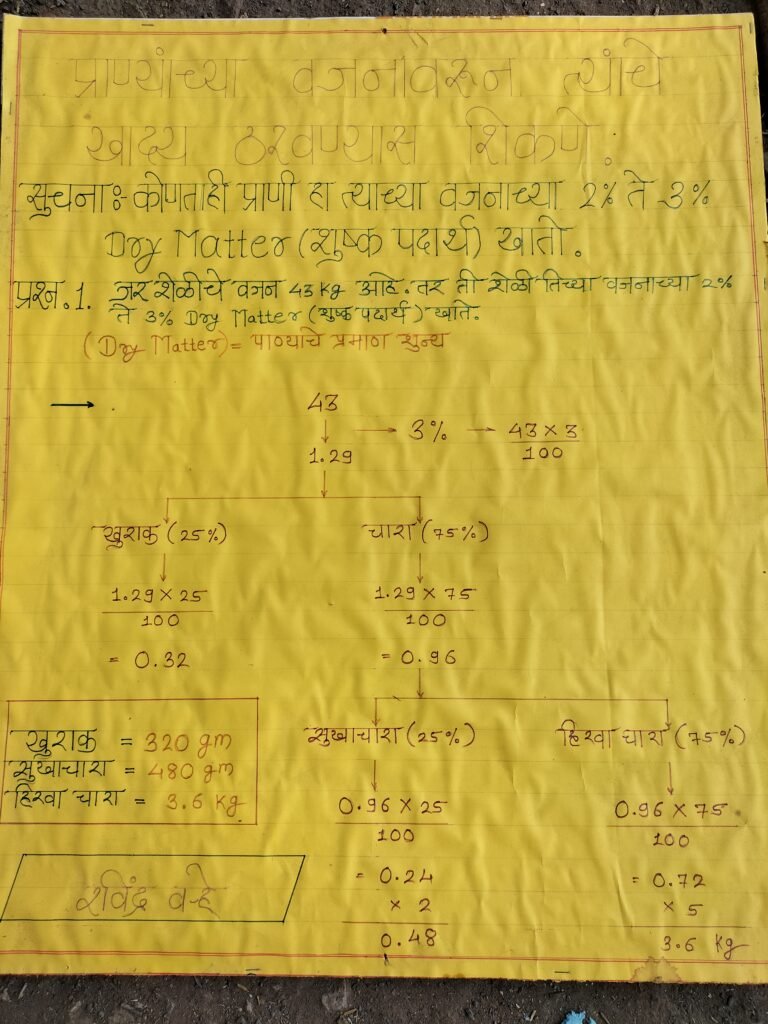 प्राण्यांच्या वजनावरून त्यांचे
खाद्य ठरवण्यास शिकणे.
सुचना:- कोणताही प्राणी हा त्याच्या वजनाच्या 2% ते 3%
Dry Matter (शुष्क पदार्थ) खातो.
प्रश्न.1. जर शेळीचे वजन 43 Kg आहे. तर ती शेळी तिच्या वजनाच्या 2%
ते 3% Dry Matter (शुष्क पदार्थ) खाते.
(Dry Matter) = पाण्याचे प्रमाण शुन्य
→ 43
↓ → 3% → 43 × 3
1.29 100
खुराक (25%) चारा (75%)
1.29 × 25 1.29 × 75
100 100
= 0.32 = 0.96
सुखाचारा (25%) हिरवा चारा (75%)
0.96 × 25 0.96 × 75
100 100
= 0.24 = 0.72
× 2 × 5
0.48 3.6 Kg
खुराक = 320 gm
सुखाचारा = 480 gm
हिरवा चारा = 3.6 Kg
रविंद्र वऱ्हे